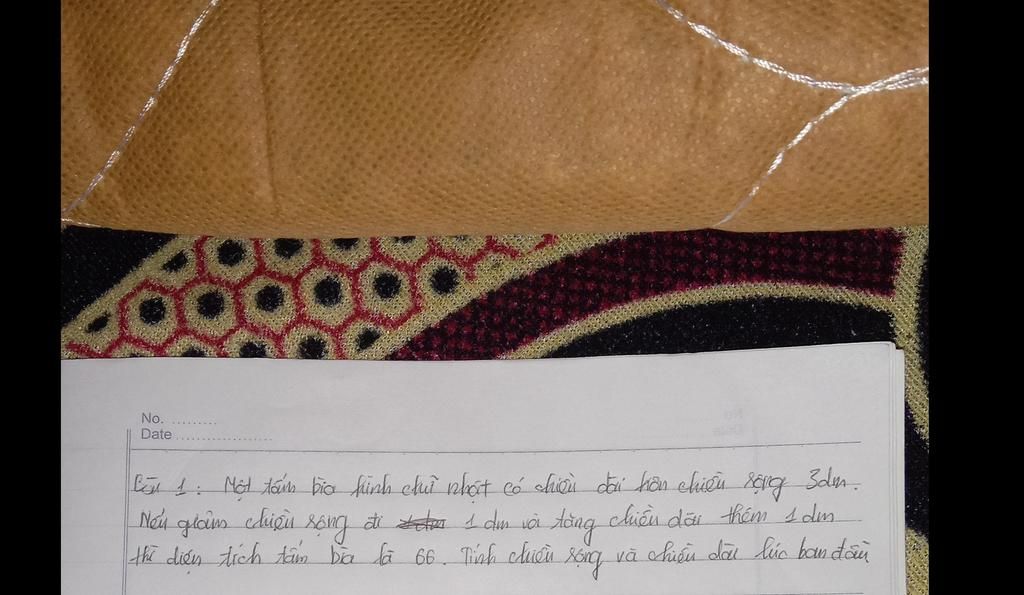 No. .........
Date ...................
Câu 1 : Một tấm bìa hình chữ nhật có chiều dài hơn chiều rộng 3dm.
Nếu giảm chiều rộng đi 1 dm và tăng chiều dài thêm 1 dm
thì diện tích tấm bìa là 66. Tính chiều rộng và chiều dài lúc ban đầu